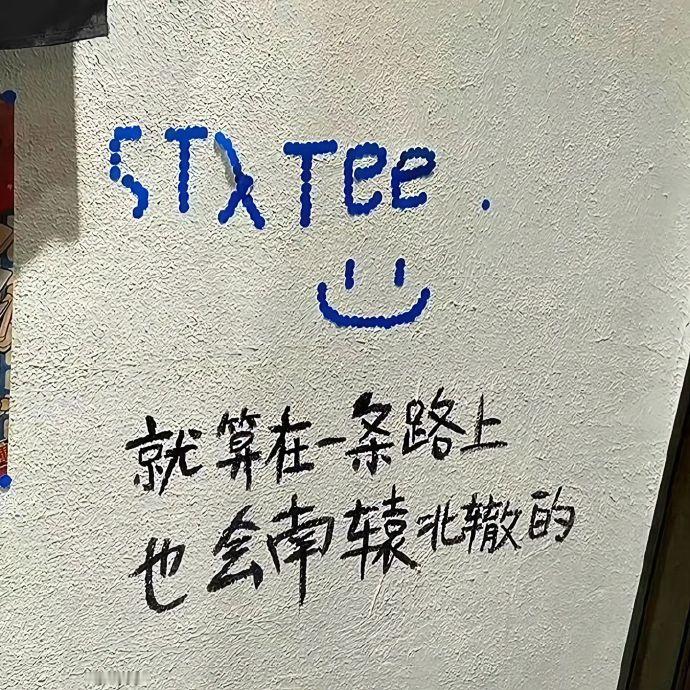 STX Tee .
就算在一条路上
也会南辕北辙的